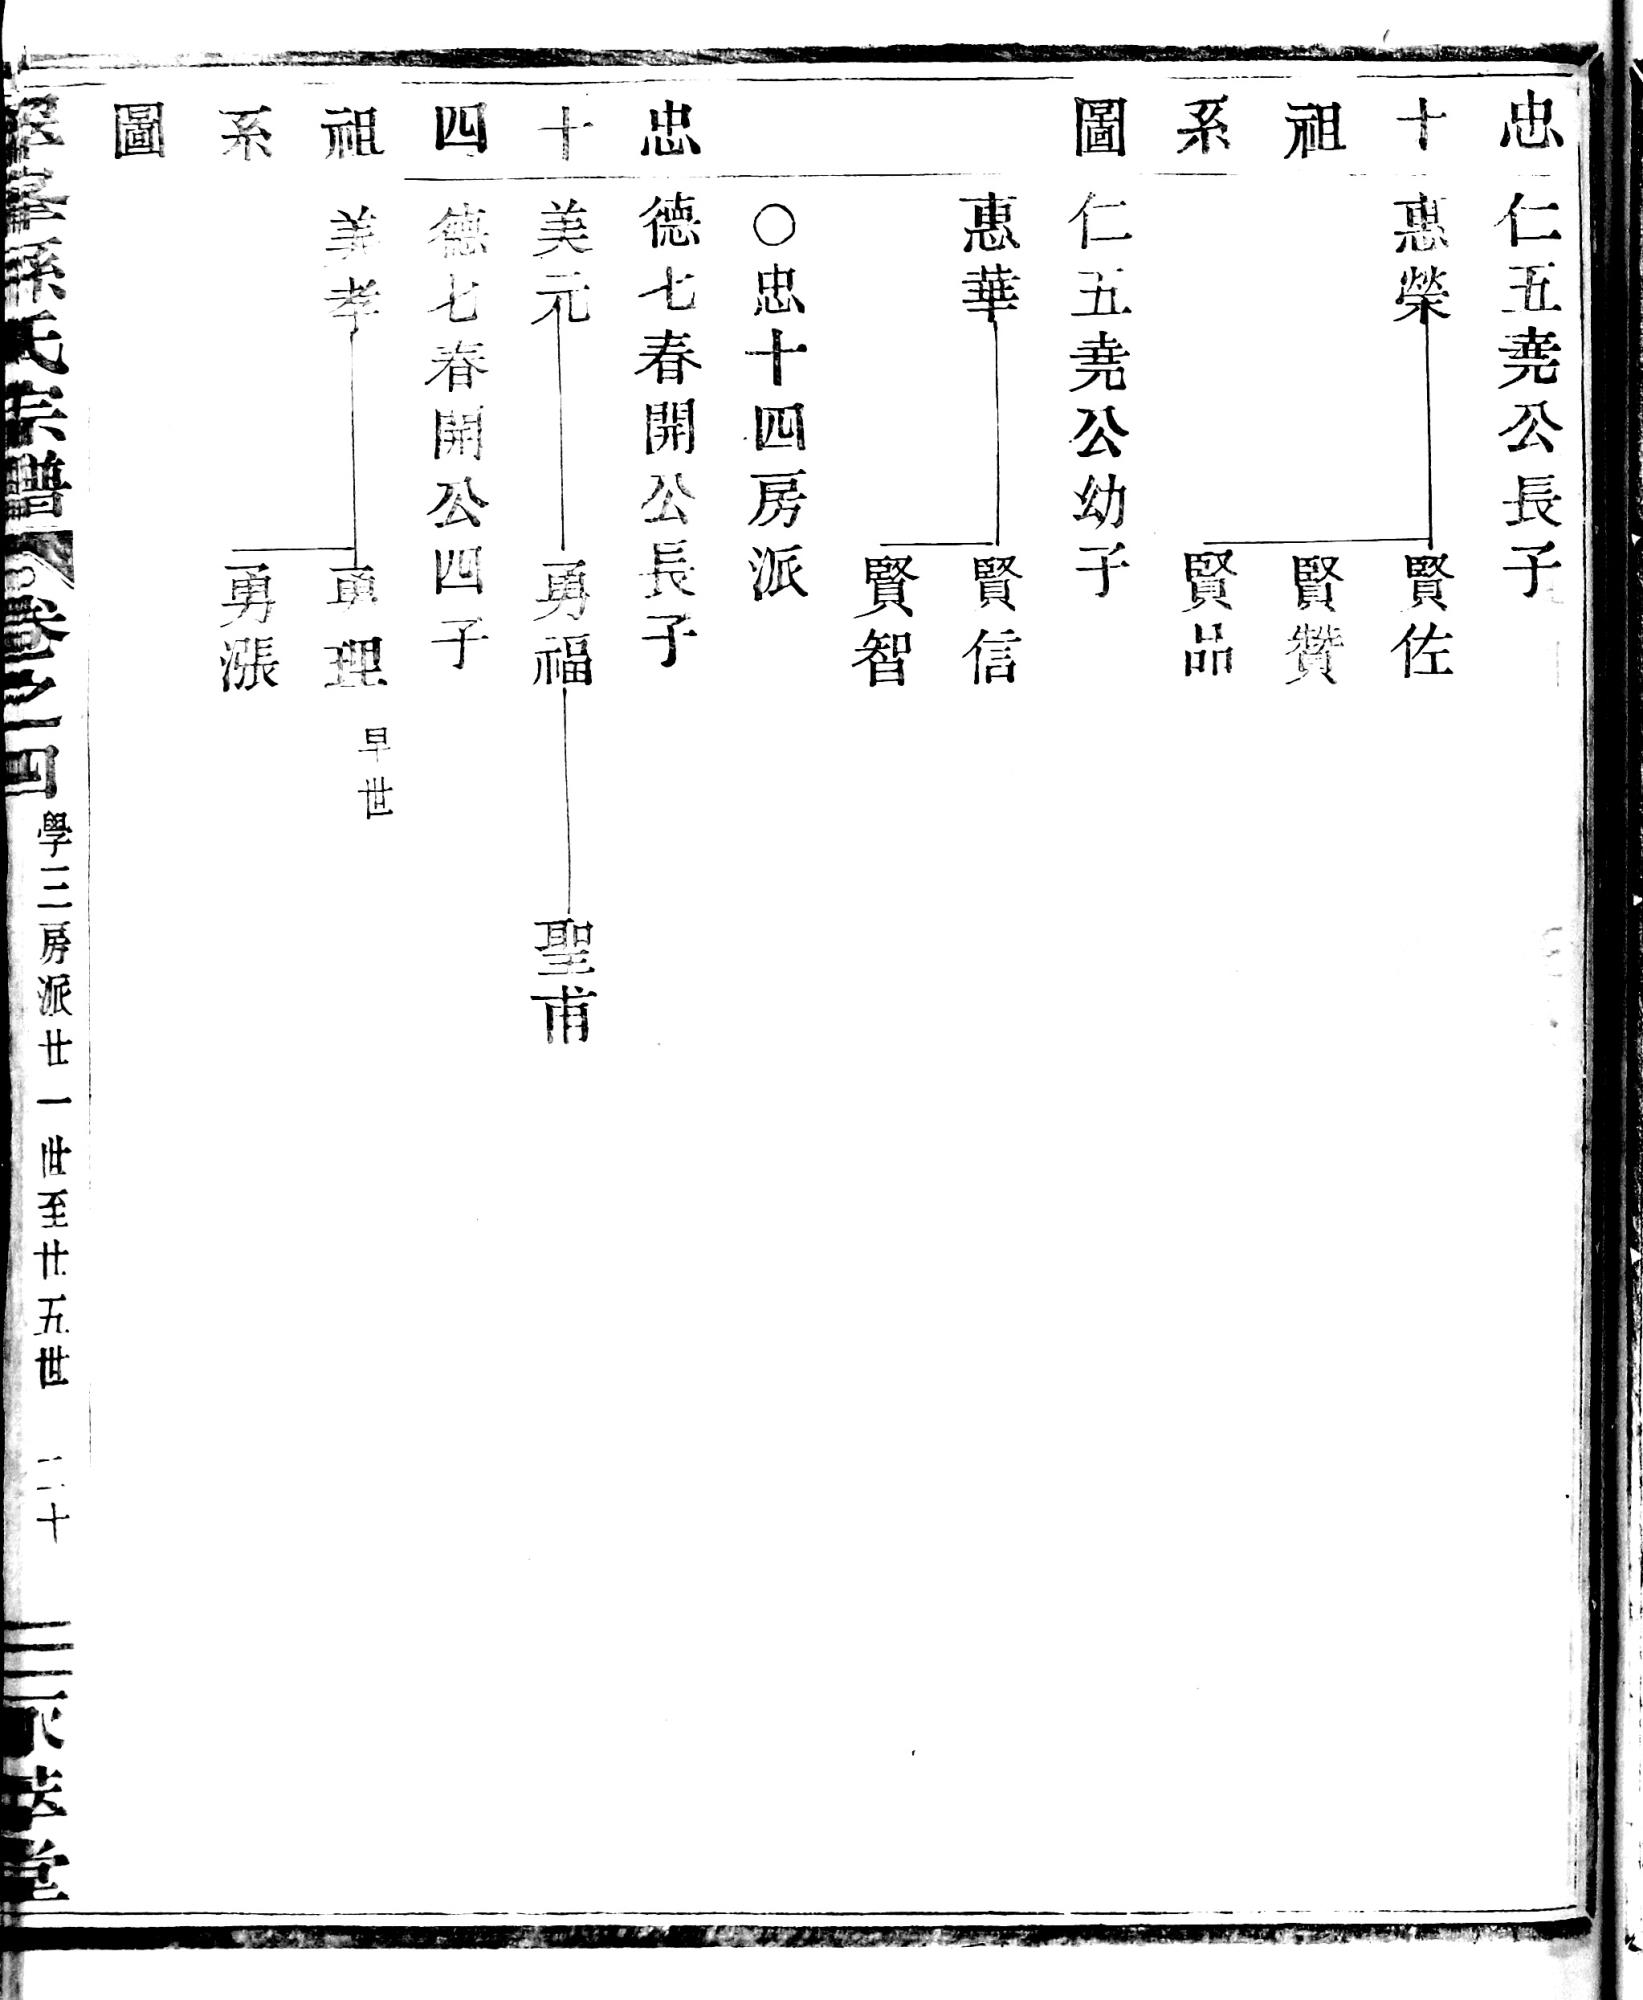 忠 仁五堯公長子
十 惠榮 賢佐
祖 賢贊
系 賢品
圖 仁五堯公幼子
惠華 賢信
賢智
○忠十四房派
忠 德七春開公長子
十 美元 勇福 聖甫
四 德七春開公四子
祖 美孝 勇理 早世
系 勇漲
圖
孫氏宗譜 卷之一四 學三房派廿一世至廿五世 二十 堂